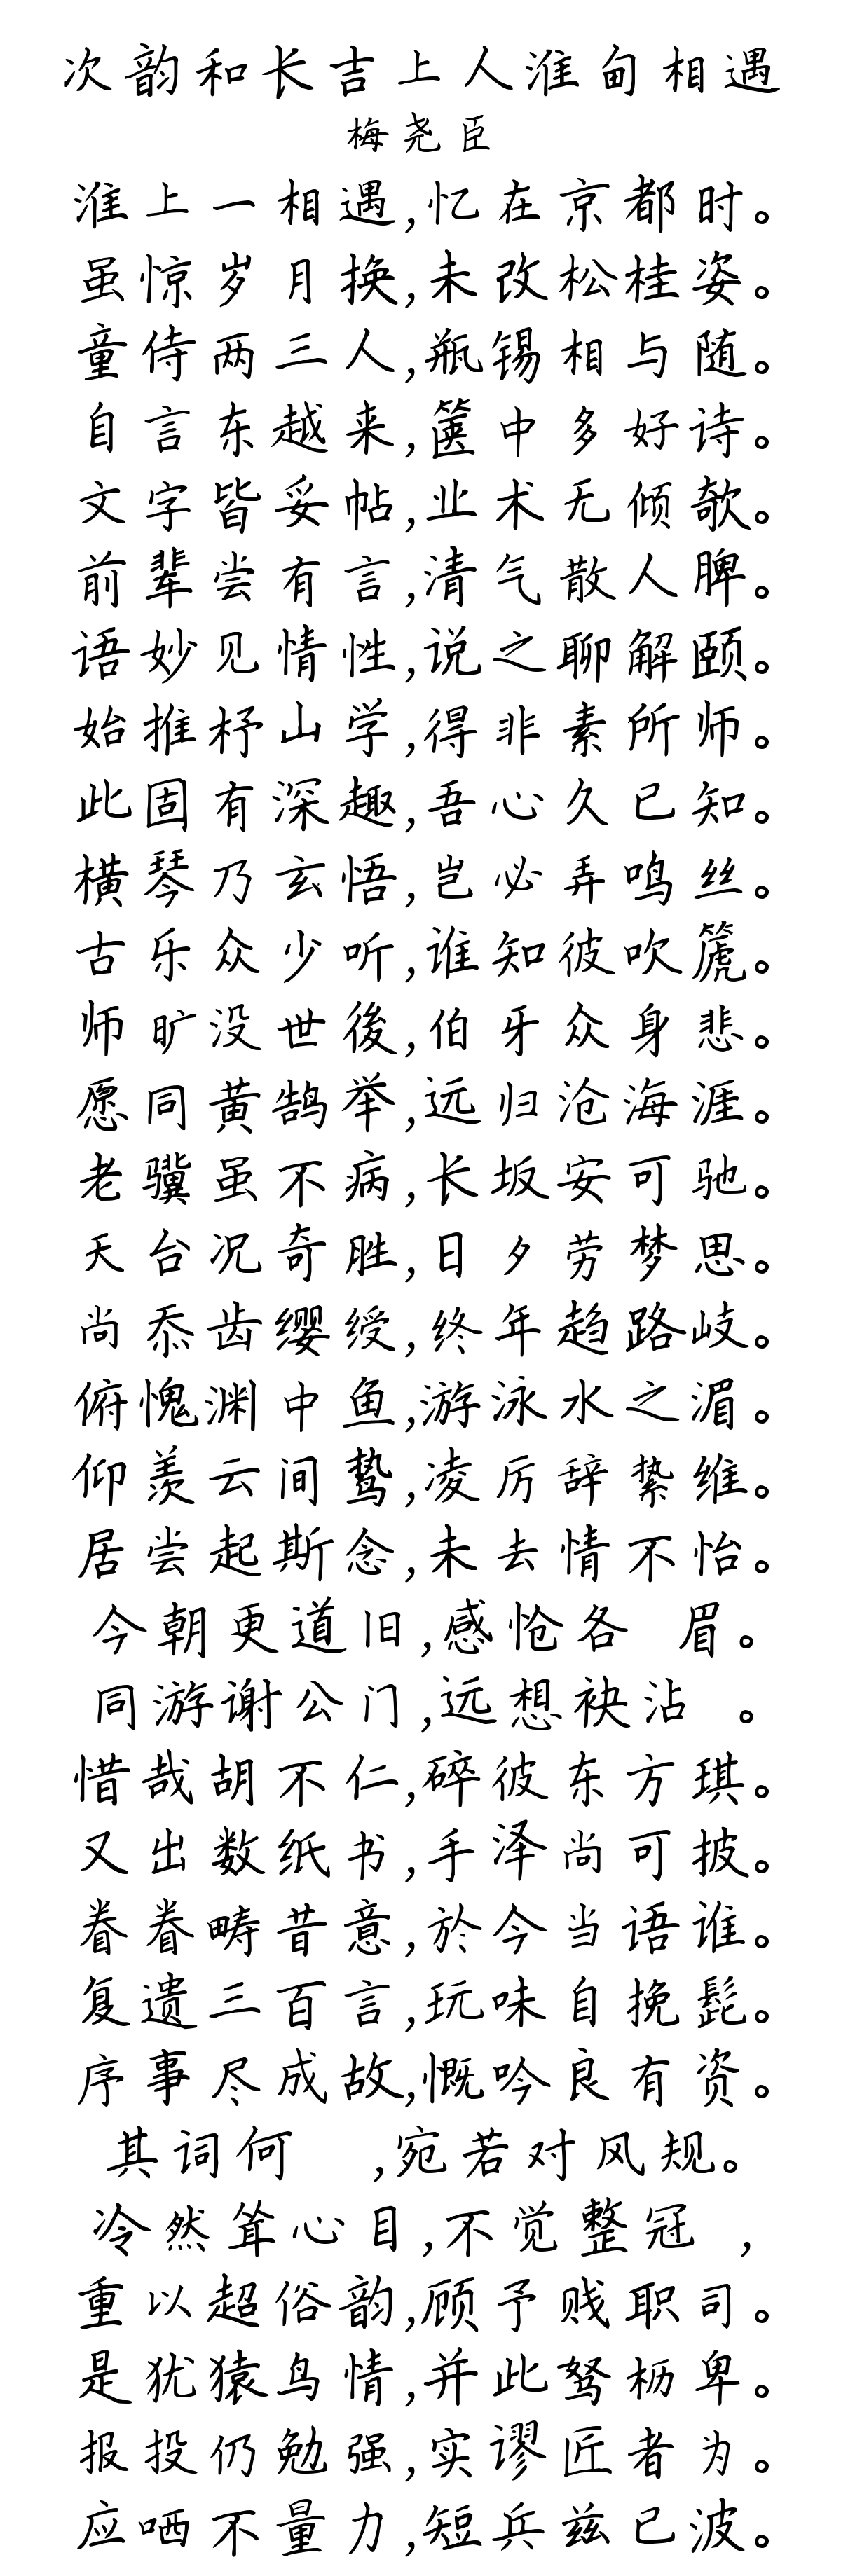 次韵和长吉上人淮甸相遇
梅尧臣
淮上一相遇,忆在京都时。
虽惊岁月换,未改松桂姿。
童侍两三人,瓶锡相与随。
自言东越来,箧中多好诗。
文字皆妥帖,业术无倾欹。
前辈尝有言,清气散人脾。
语妙见情性,说之聊解颐。
始推杼山学,得非素所师。
此固有深趣,吾心久已知。
横琴乃玄悟,岂必弄鸣丝。
古乐众少听,谁知彼吹篪。
师旷没世後,伯牙众身悲。
愿同黄鹄举,远归沧海涯。
老骥虽不病,长坂安可驰。
天台况奇胜,日夕劳梦思。
尚忝齿缨绶,终年趋路岐。
俯愧渊中鱼,游泳水之湄。
仰羡云间鸷,凌厉辞絷维。
居尝起斯念,未去情不怡。
今朝更道旧,感怆各 眉。
同游谢公门,远想袂沾 。
惜哉胡不仁,碎彼东方琪。
又出数纸书,手泽尚可披。
眷眷畴昔意,於今当语谁。
复遗三百言,玩味自挽髭。
序事尽成故,慨吟良有资。
其词何 ,宛若对风规。
冷然耸心目,不觉整冠 ,
重以超俗韵,顾予贱职司。
是犹猿鸟情,并此驽枥卑。
报投仍勉强,实谬匠者为。
应哂不量力,短兵兹已波。